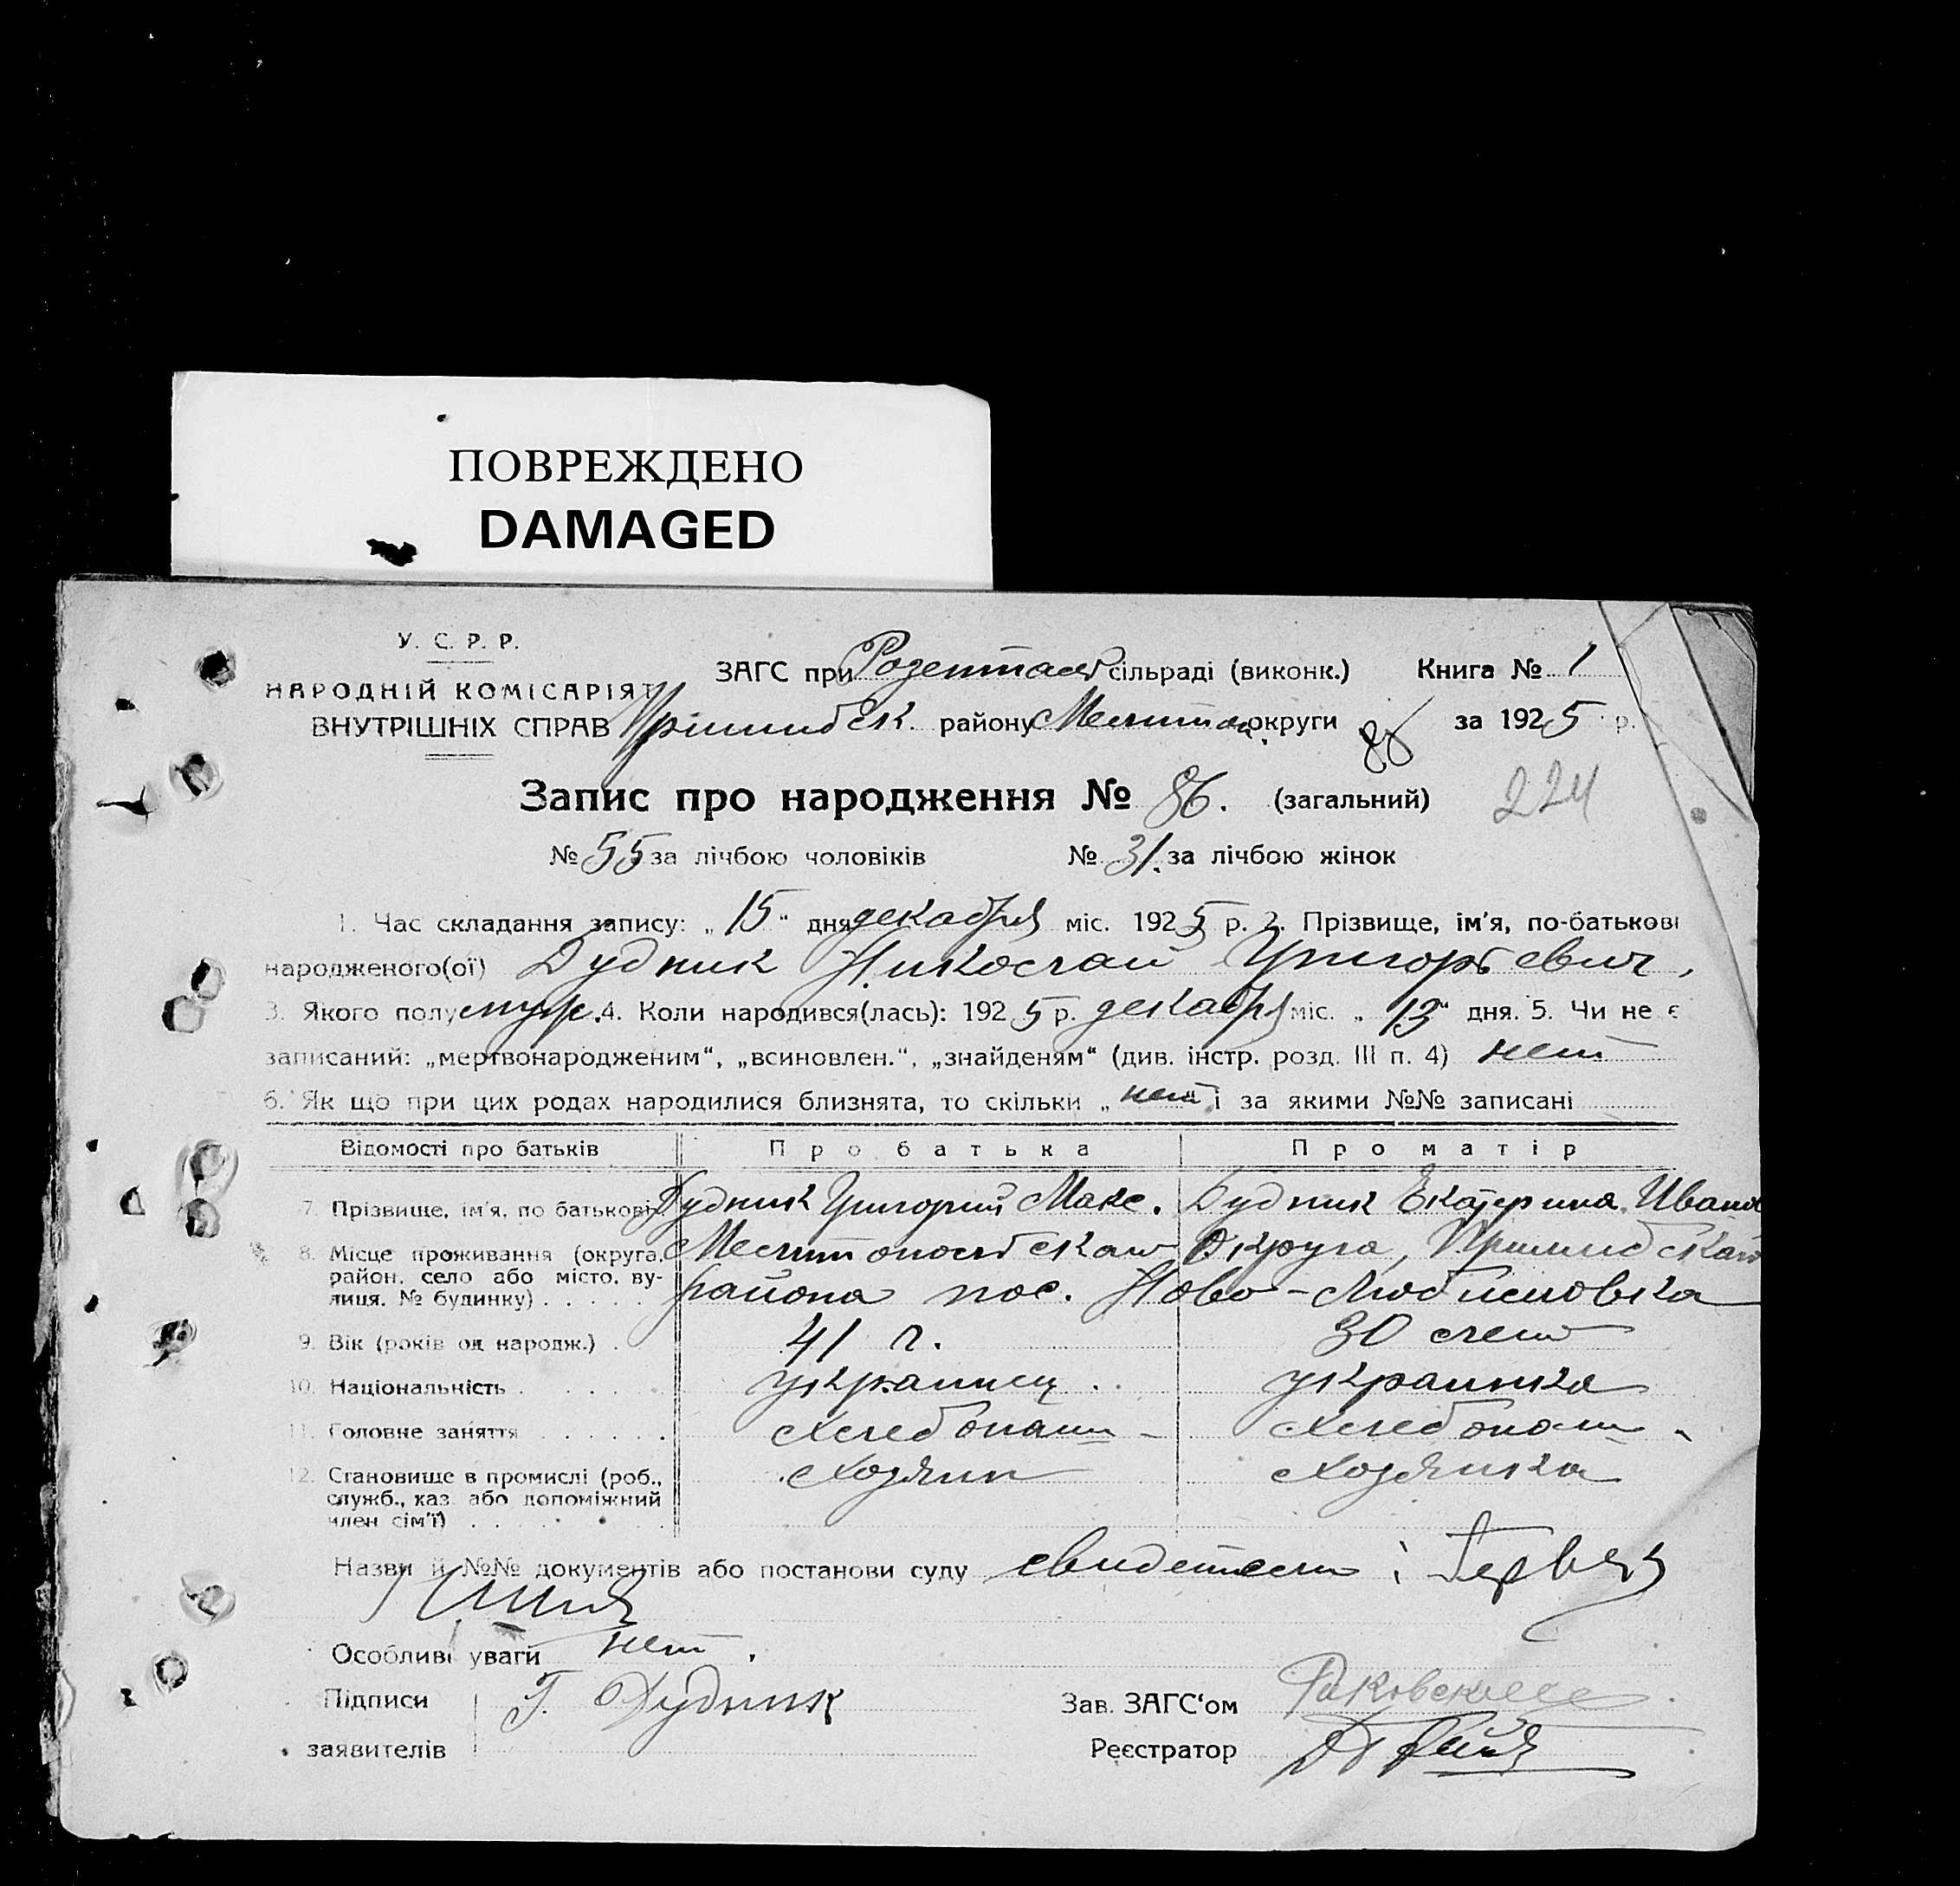 ПОВРЕЖДЕНО
DAMAGED
У. С. Р. Р.
НАРОДНІЙ КОМІСАРІЯТ
ВНУТРІШНІХ СПРАВ
ЗАГС при Розенталь сільраді (виконк.) Книга № 1
Пришибск. району Мелитоп. округи 86 за 1925 р.
Запис про народження № 86. (загальний) 224
№ 55 за лічбою чоловіків № 31. за лічбою жінок
1. Час складання запису: „15“ дня декабря міс. 1925 р. 2. Прізвище, ім'я, по-батькові
народженого(ої) Дудник Николай Григорьевич,
3. Якого полу муж. 4. Коли народився(лась): 1925 р. декабря міс. „13“ дня. 5. Чи не є
записаний: „мертвонародженим“, „всиновлен.“, „знайденям“ (див. інстр. розд. III п. 4) нет
6. Як що при цих родах народилися близнята, то скільки „нет“ і за якими №№ записані
Відомості про батьків Про батька Про матір
7. Прізвище, ім'я, по батькові Дудник Григорий Макс. Дудник Екатерина Иванов
8. Місце проживання (округа, Мелитопольская Округа, Пришибская
район, село або місто, ву-
лиця, № будинку) района пос. Ново-Любимовка
9. Вік (років од народж.) 41 г. 30 лет
10. Національність украинец украинка
11. Головне заняття Хлебопаш Хлебопаш
12. Становище в промислі (роб., Хозяин Хозяйка
служб., каз. або допоміжний
член сім'ї)
Назви й №№ документів або постанови суду свидетели:
Особливі уваги нет.
Підписи Г. Дудник Зав. ЗАГС'ом
заявителів Реєстратор